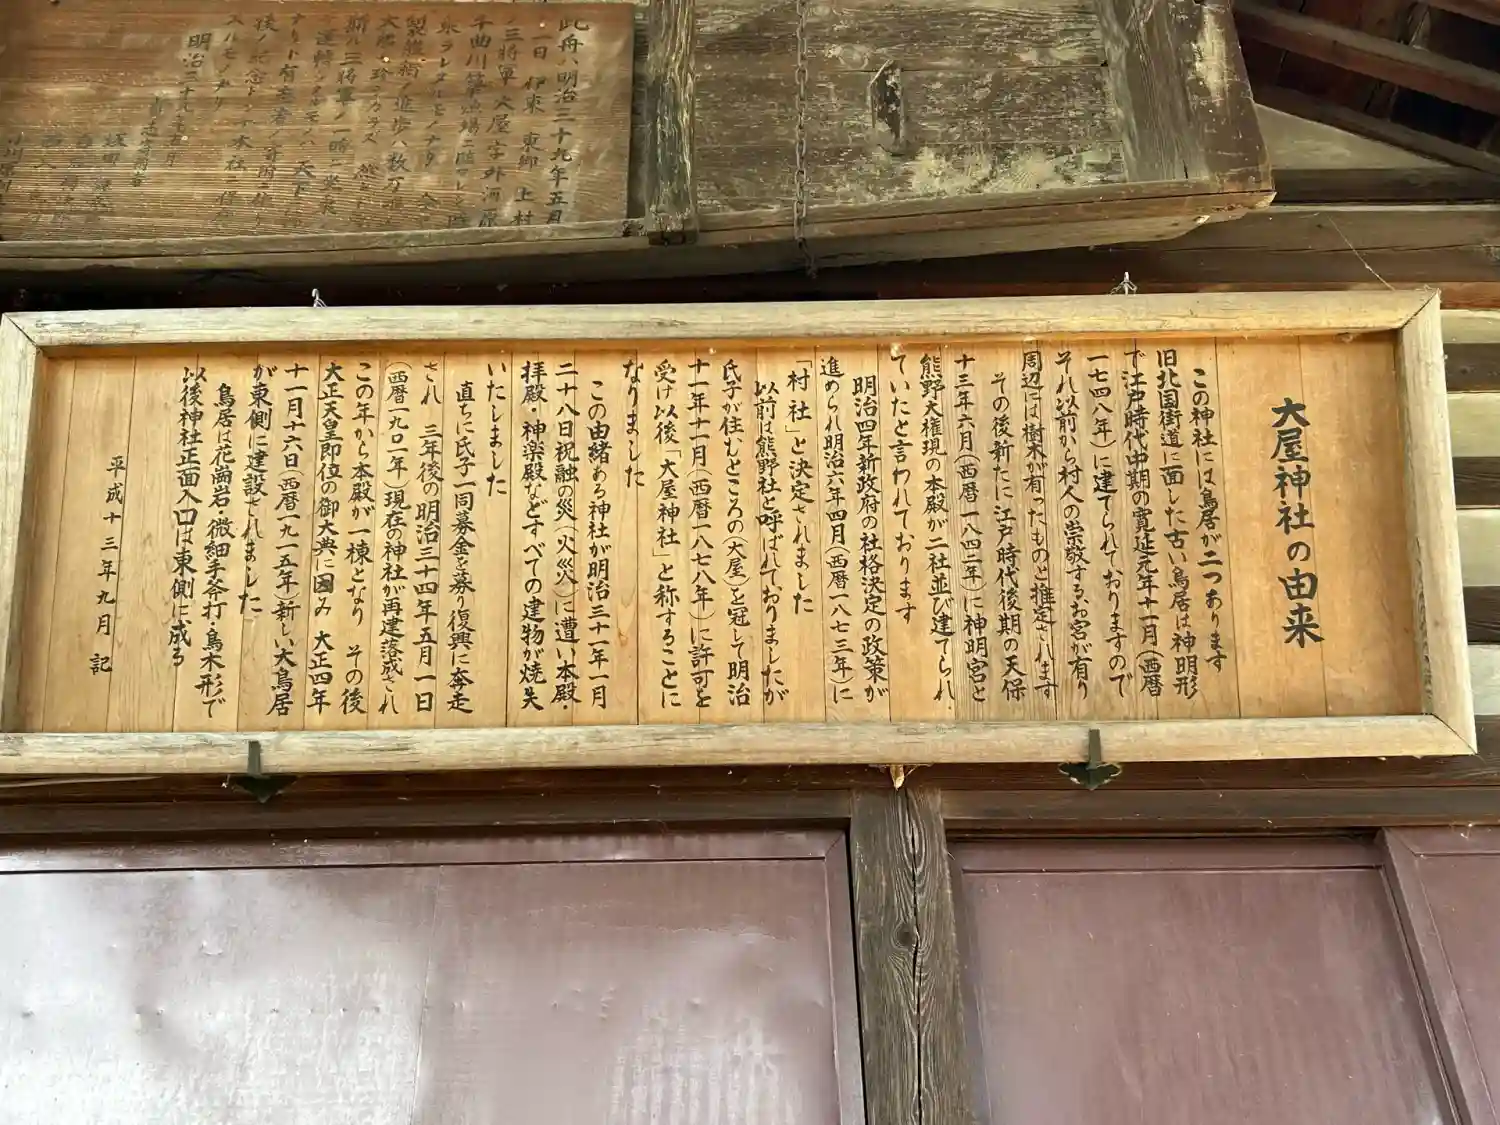 此舟ハ明治三十九年五月
一日 伊東 東郷 上村
ノ三将軍大屋字外河原
千曲川
明治三十九年五月
大屋神社の由来
この神社には鳥居が二つあります
旧北国街道に面した古い鳥居は神明形
で江戸時代中期の寛延元年十一月(西暦
一七四八年)に建てられておりますので
それ以前から村人の崇敬するお宮が有り
周辺には樹木が有ったものと推定されます
その後新たに江戸時代後期の天保
十三年六月(西暦一八四二年)に神明宮と
熊野大権現の本殿が二社並び建てられ
ていたと言われております
明治四年新政府の社格決定の政策が
進められ明治六年四月(西暦一八七三年)に
「村社」と決定されました
以前は熊野社と呼ばれておりましたが
氏子が住むところの(大屋)を冠して明治
十一年十一月(西暦一八七八年)に許可を
受け以後「大屋神社」と称することに
なりました
この由緒ある神社が明治三十一年一月
二十八日祝融の災(火災)に遭い本殿・
拝殿・神楽殿などすべての建物が焼失
いたしました
直ちに氏子一同募金を募り復興に奔走
され 三年後の明治三十四年五月一日
(西暦一九〇一年)現在の神社が再建落成され
この年から本殿が一棟となり その後
大正天皇即位の御大典に因み 大正四年
十一月十六日(西暦一九一五年)新しい大鳥居
が東側に建設されました
鳥居は花崗岩・微細手斧打・鳥木形で
以後神社正面入口は東側に成る
平成十三年九月 記